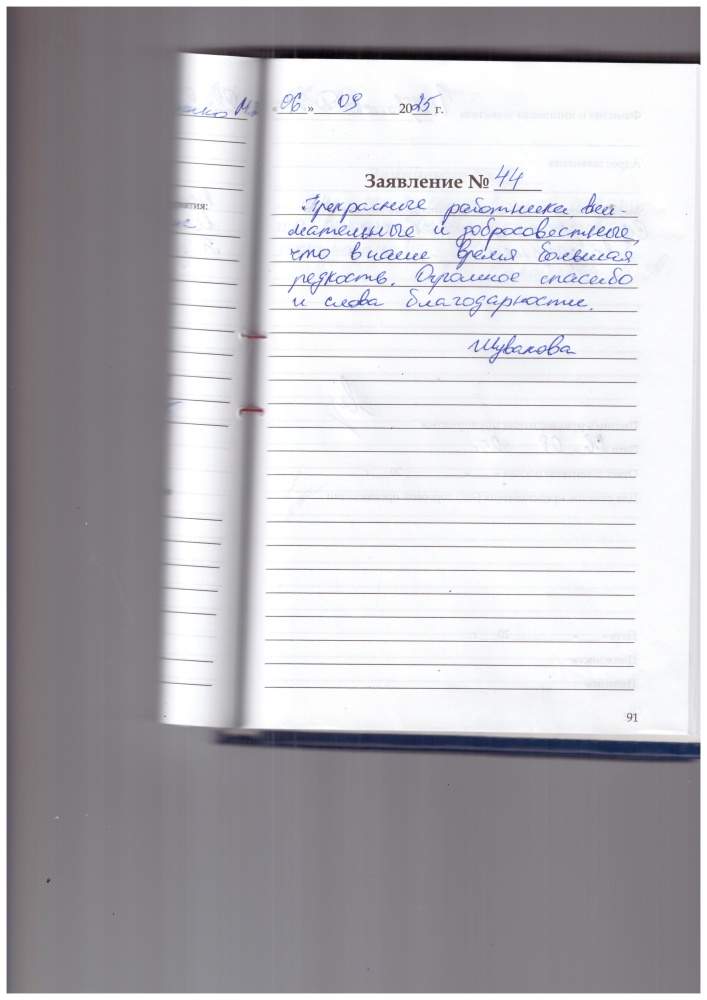 «06» 09 2025 г.
Заявление № 44
Прекрасные работники вни-
мательные и добросовестные,
что в наше время большая
редкость. Огромное спасибо
и слова благодарности.
Шувакова
91